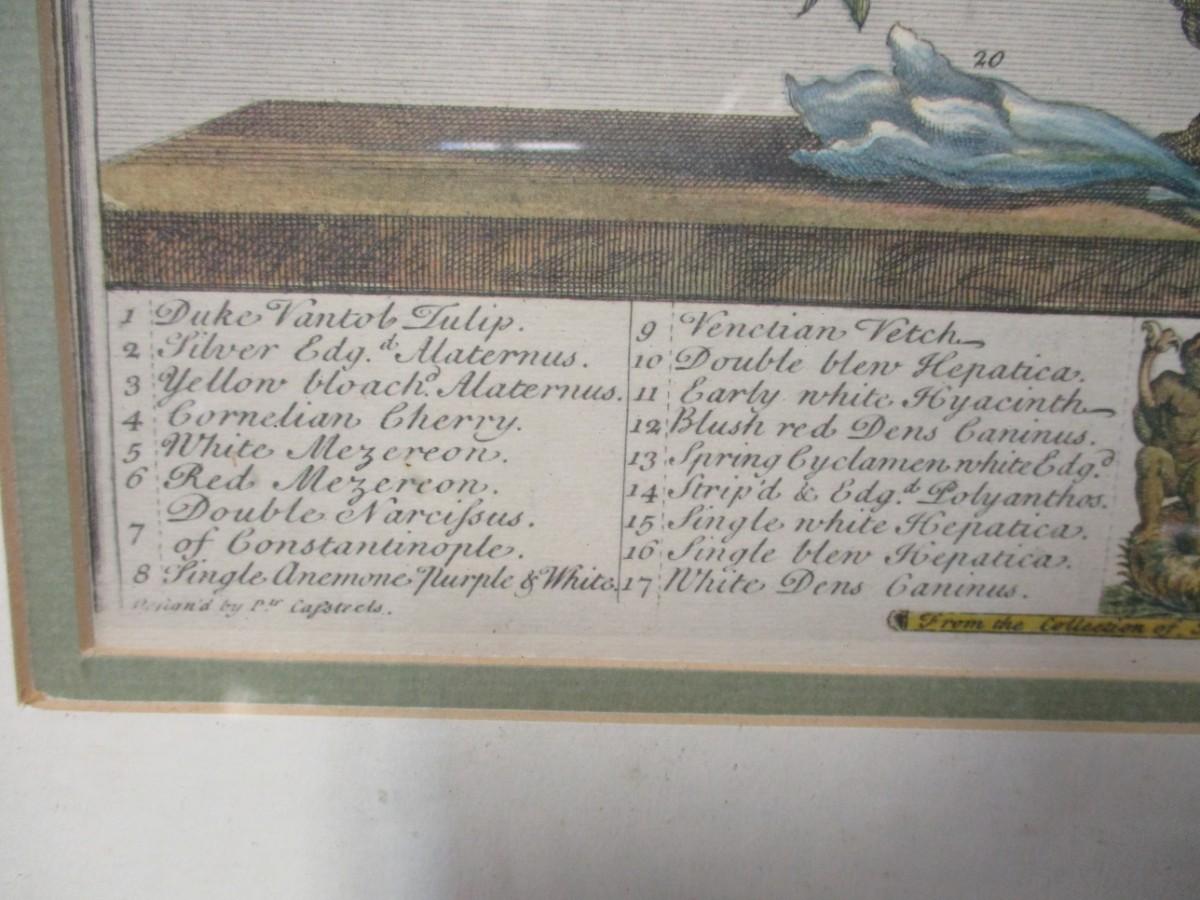 20
1 Duke Vantol Tulip.
2 Silver Edg.d Alaternus.
3 Yellow bloach'd Alaternus.
4 Cornelian Cherry.
5 White Mezereon.
6 Red Mezereon.
7 Double Narcissus.
of Constantinople.
8 Single Anemone Purple & White.
Design'd by Pr. Casteels.
9 Venetian Vetch
10 Double blew Hepatica.
11 Early white Hyacinth
12 Blush red Dens Caninus.
13 Spring Cyclamen white Edg'd
14 Strip'd & Edg.d Polyanthos.
15 Single white Hepatica.
16 Single blew Hepatica.
17 White Dens Caninus.
From the Collection of